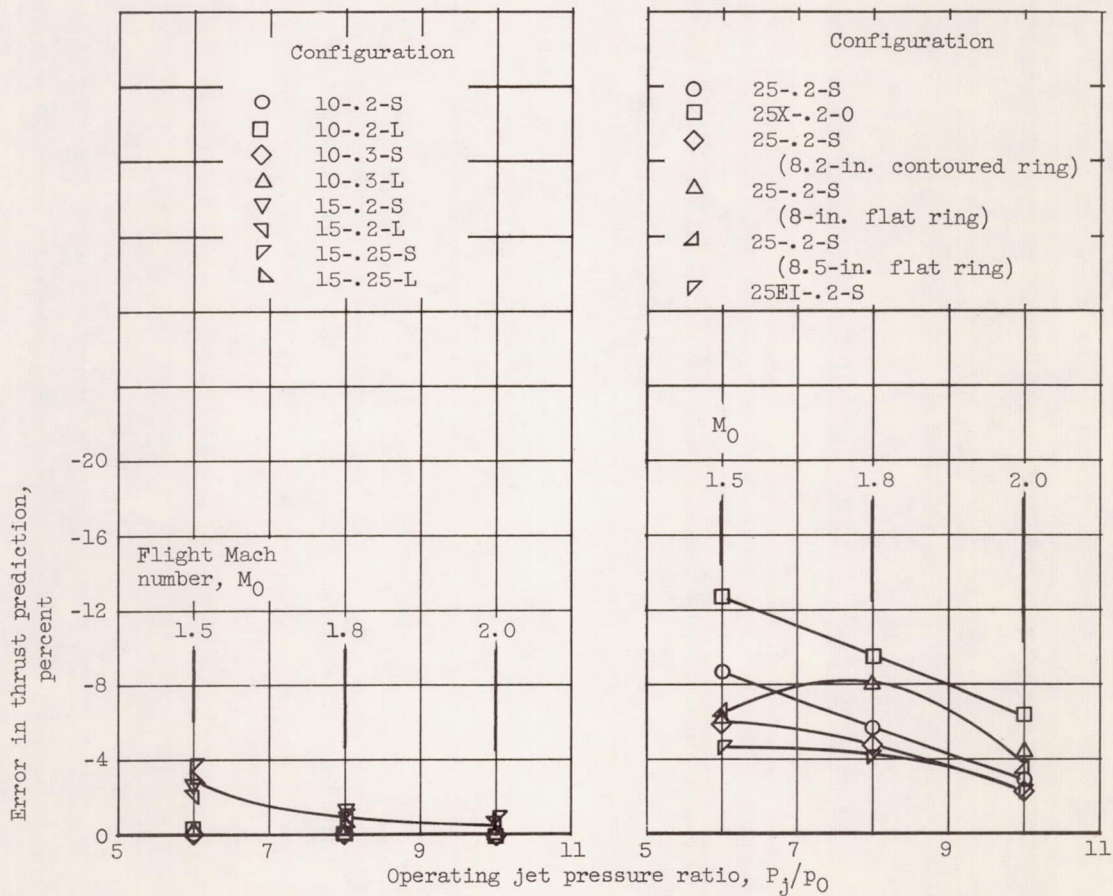 Configuration
10-.2-S
10-.2-L
10-.3-S
10-.3-L
15-.2-S
15-.2-L
15-.25-S
15-.25-L
Configuration
25-.2-S
25X-.2-O
25-.2-S
(8.2-in. contoured ring)
25-.2-S
(8-in. flat ring)
25-.2-S
(8.5-in. flat ring)
25EI-.2-S
Error in thrust prediction,
percent
-20
-16
-12
-8
-4
0
Flight Mach
number, M0
1.5 1.8 2.0
5 7 9 11
M0
1.5 1.8 2.0
5 7 9 11
Operating jet pressure ratio, Pj/p0